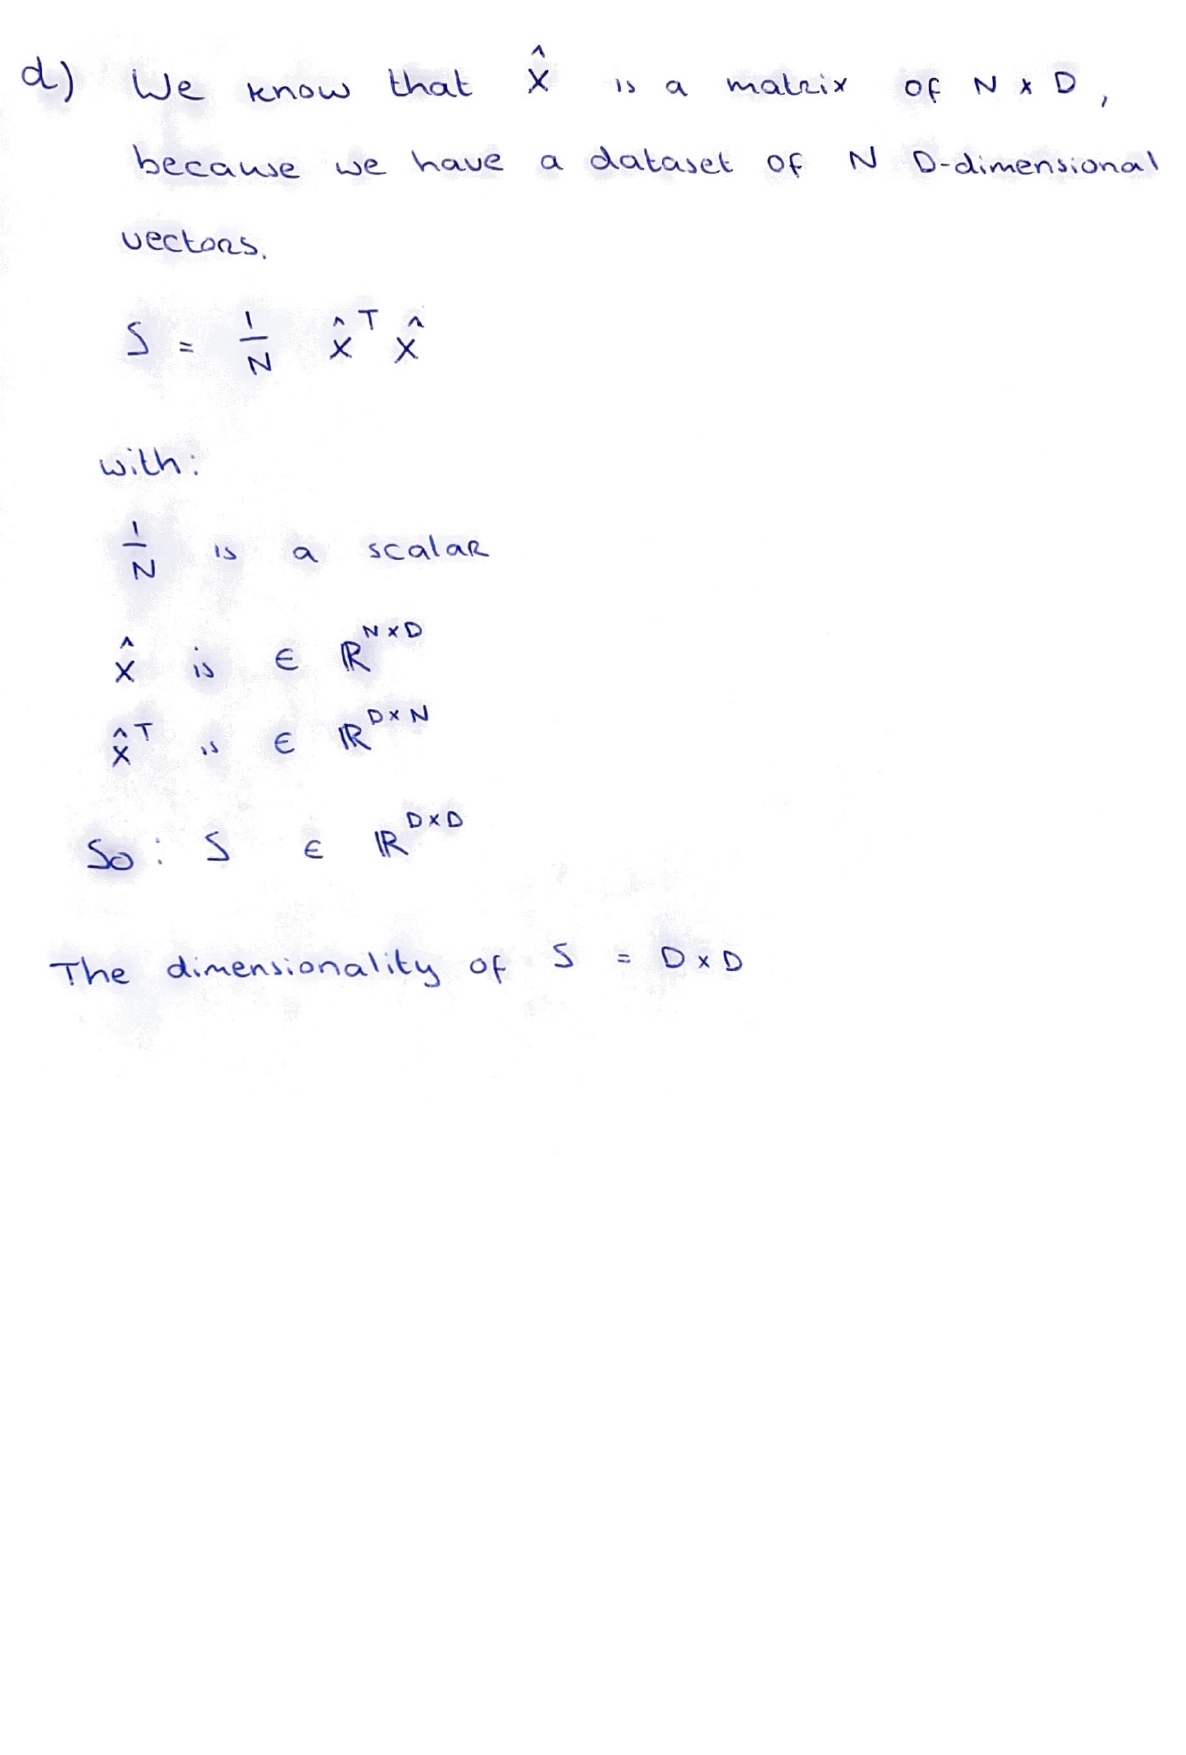 d) We know that X̂ is a matrix of N × D,
because we have a dataset of N D-dimensional
vectors.
S = 1/N X̂ᵀ X̂
with:
1/N is a scalar
X̂ is ∈ ℝᴺˣᴰ
X̂ᵀ is ∈ ℝᴰˣᴺ
So: S ∈ ℝᴰˣᴰ
The dimensionality of S = D × D